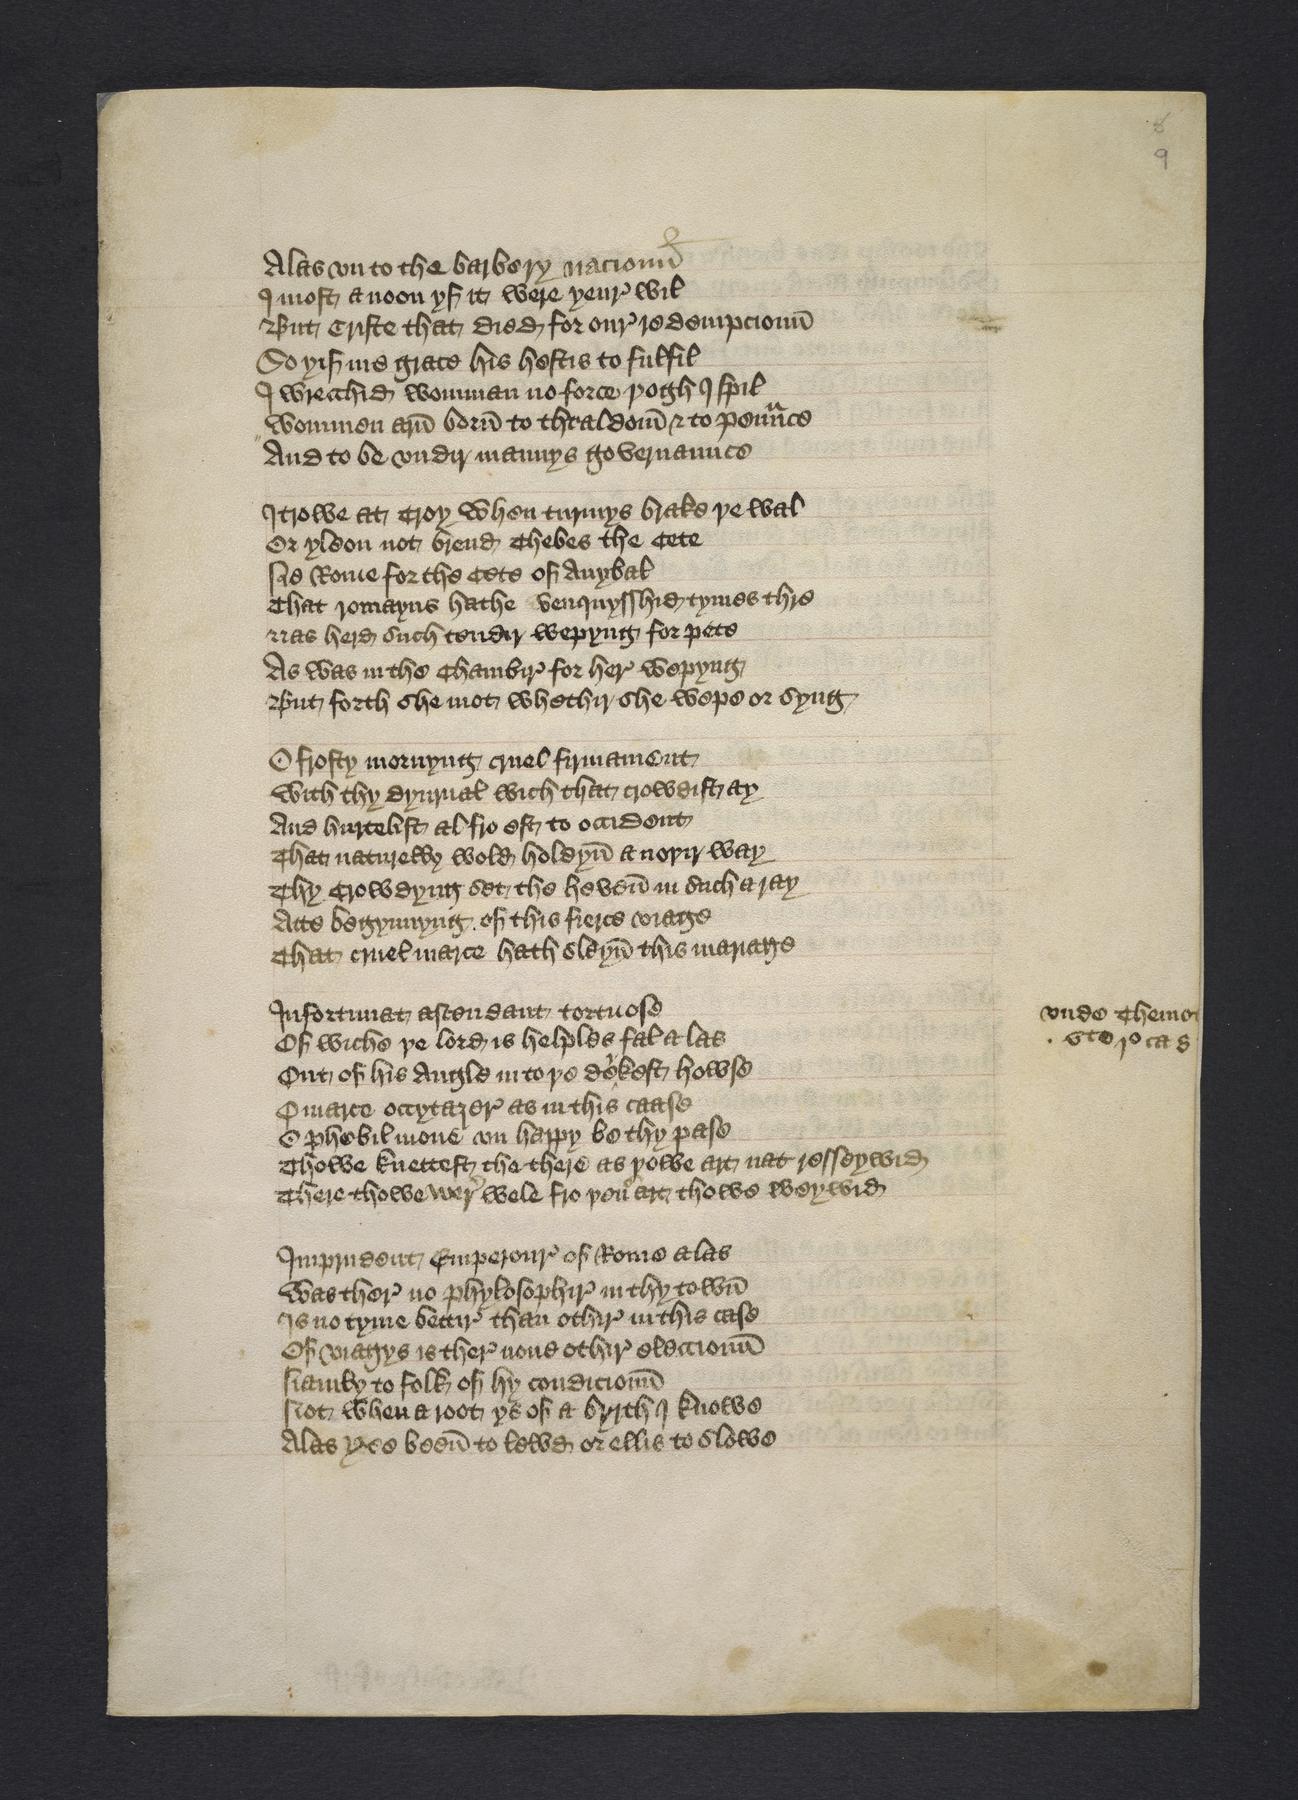 9
Alas vn to the barbery nacioun̄
I most a noon yf it were yeur wil
But Criste that died for our redempcioun̄
So yif me grace his hestis to fulfil
I wrecchid womman no force þogh I spil
Wommen arn̄ born̄ to thraldom̄ & to penn̄ce
And to be vndir mannys governaunce
I trowe at Troy when turnys brake þe wal
Or yleon not brend Thebes the Cete
Ne Rome for the Cete of Anybal
That romayns hathe venquysshid tymes thre
Nas herd such tendir wepyng for pete
As was in the Chambir for her wepyng
But forth she mot whethir she wepe or syng
O frosty mornyng cruel firmament
With thy dyurnal wich that crowdist ay
And hurtelist al fro est to occident
That naturely wold holdyn̄ a noþir way
Thy Crowdyng set the heuen̄ in such aray
Atte begynnyng of this fierce viage
That cruel marce hath sleyn̄ this mariage
Infortunat ascendant tortuose
Of wiche þe lord is helples fal alas
Out of his Angle in to þe dekest howse
O marce occytazer as in this caase
O phebil mone vn happy be thy pase
Thowe knettest the there as þowe art nat resseywid
There thowe wer wele fro þeu art thowe weywid
vnde Themo
ste ro ca 8
Imprudent Emperour of Rome alas
Was ther no phylosophir in thy town̄
Is no tyme bettir than othir in this case
Of viagys is ther none othir eleccioun̄
Namly to folk of hy condicioun̄
Not when a root ys of a byrth I knowe
Alas
been̄ to lewd or ellis to slowe